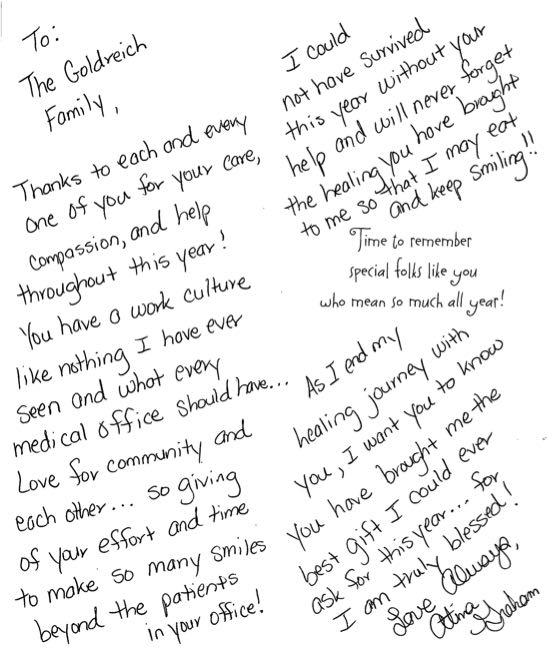 To:
The Goldreich
Family,
Thanks to each and every
one of you for your care,
compassion, and help
throughout this year!
You have a work culture
like nothing I have ever
seen and what every
medical office should have...
Love for community and
each other... so giving
of your effort and time
to make so many smiles
beyond the patients
in your office!
I could
not have survived
this year without your
help and will never forget
the healing you have brought
to me so that I may eat
and keep smiling!!
Time to remember
special folks like you
who mean so much all year!
As I end my
healing journey with
you, I want you to know
you have brought me the
best gift I could ever
ask for this year... for
I am truly blessed!
Love Always,
Graham